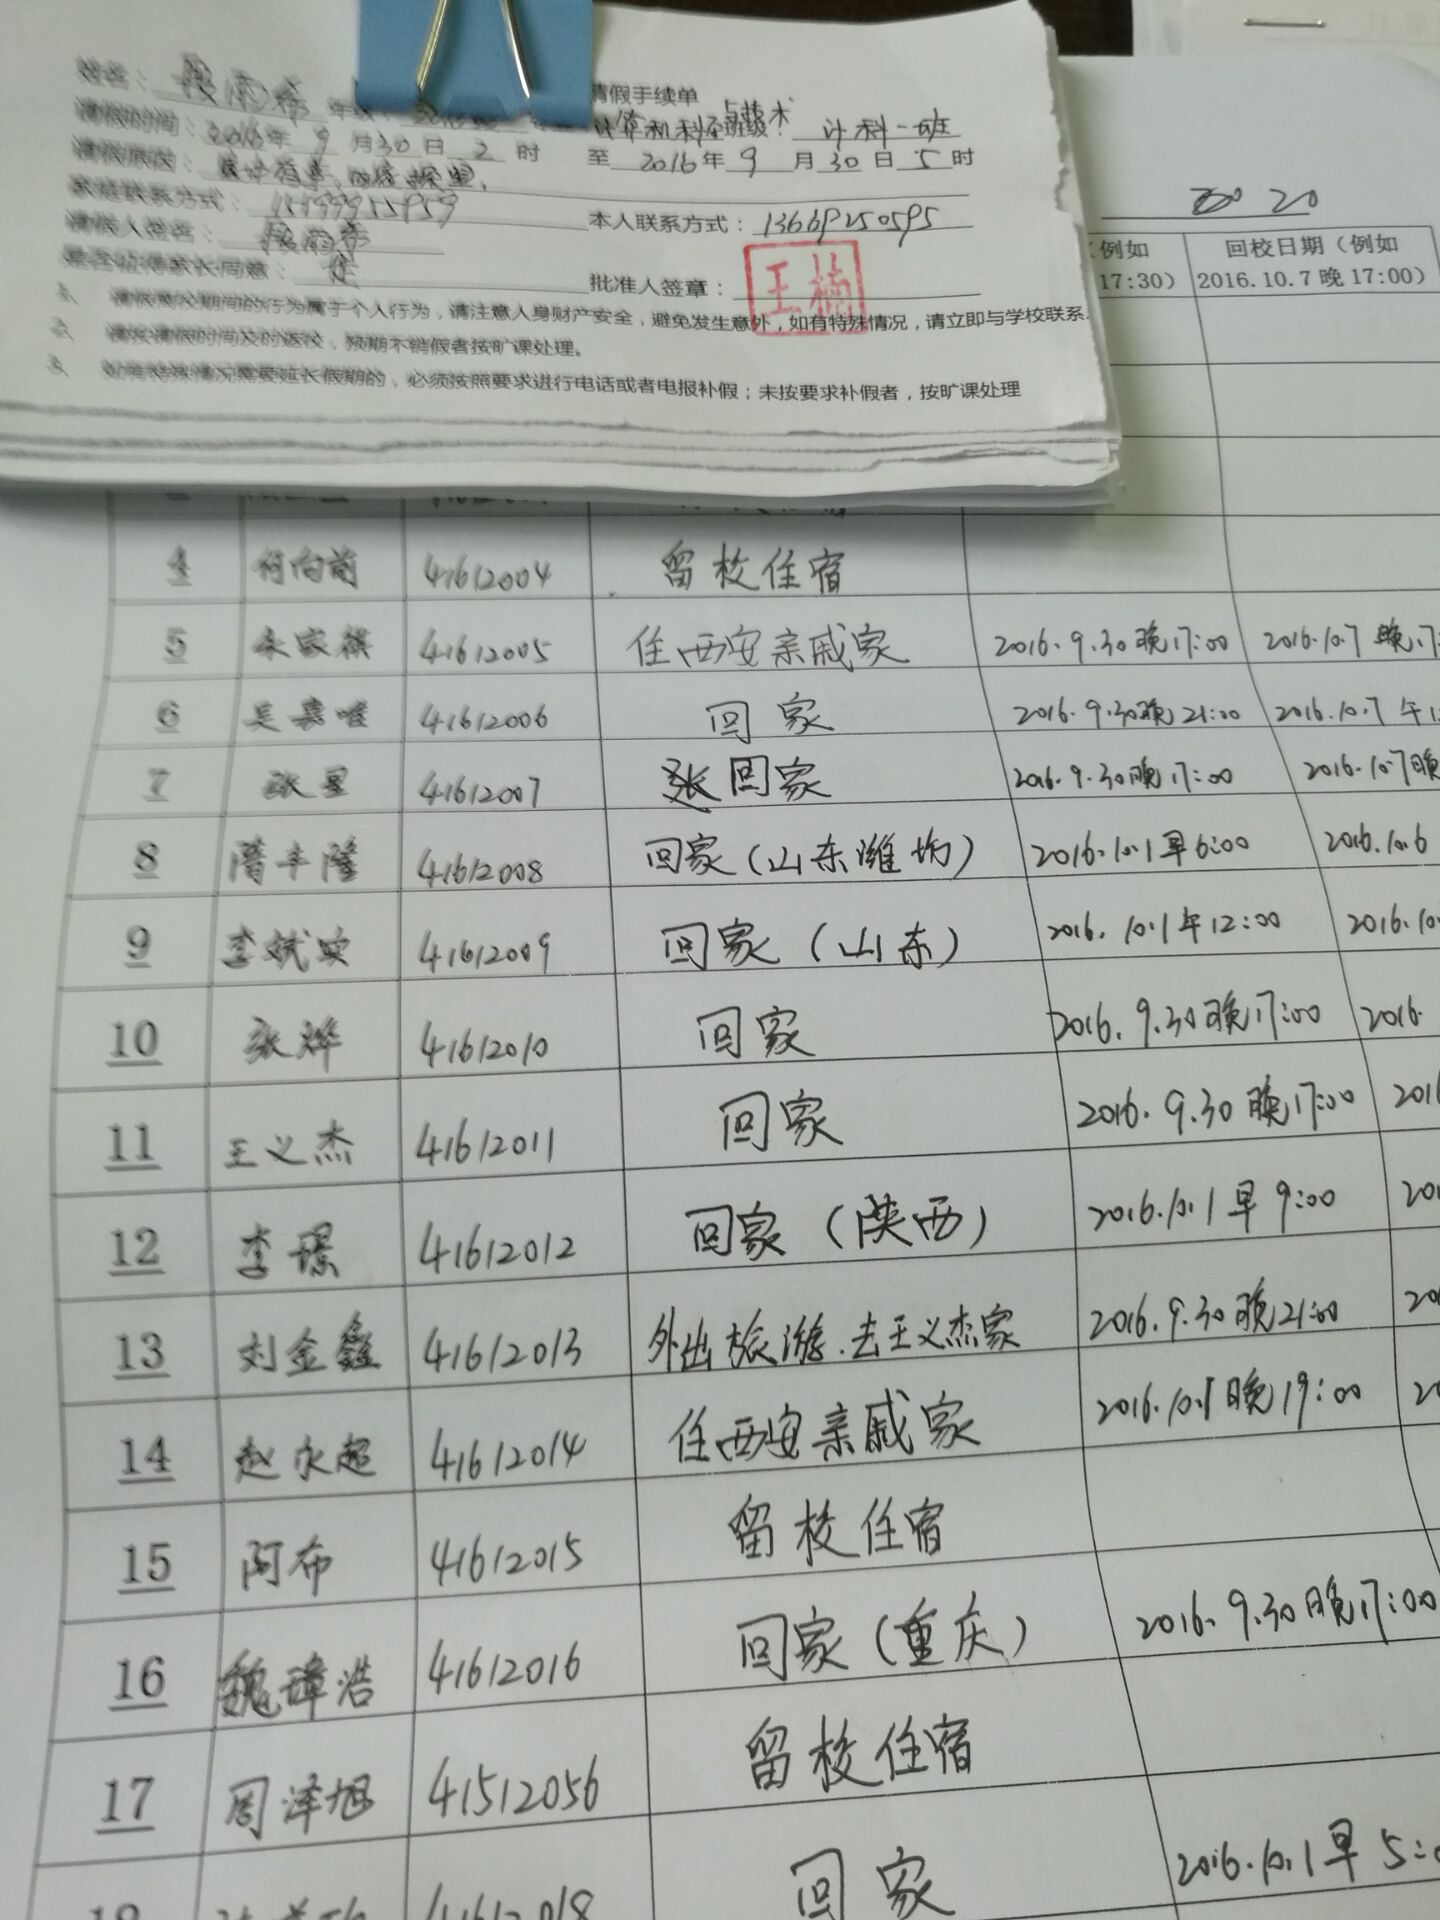 请假手续单
姓名： 年级： 计算机科学与技术 班级： 计科一班
请假时间：2016年 9 月30日 2 时 至 2016年 9 月 30 日 5 时
请假原因：
家庭联系方式：
本人联系方式：13669250595
请假人签名：
是否征得家长同意：是
批准人签章： 王楠
1、请假离校期间的行为属于个人行为，请注意人身财产安全，避免发生意外，如有特殊情况，请立即与学校联系。
2、请按请假时间及时返校，预期不销假者按旷课处理。
3、如有特殊情况需要延长假期的，必须按照要求进行电话或者电报补假；未按要求补假者，按旷课处理
20
（例如 17:30） 回校日期（例如 2016.10.7 晚 17:00）
4 何向前 41612004 留校住宿
5 朱家祺 41612005 住西安亲戚家 2016.9.30晚17:00 2016.10.7 晚17:
6 吴嘉唯 41612006 回家 2016.9.30晚21:00 2016.10.7 午1
7 张星 41612007 回家 2016.9.30晚17:00 2016.10.7晚
8 隋丰隆 41612008 回家（山东潍坊） 2016.10.1早6:00 2016.10.6
9 李斌实 41612009 回家（山东） 2016.10.1午12:00 2016.10.
10 张烨 41612010 回家 2016.9.30晚17:00 2016.
11 王义杰 41612011 回家 2016.9.30晚17:00 2016
12 李璟 41612012 回家（陕西） 2016.10.1早9:00 201
13 刘金鑫 41612013 外出旅游.去王义杰家 2016.9.30晚21:00 20
14 赵永超 41612014 住西安亲戚家 2016.10.1晚19:00 2
15 阿布 41612015 留校住宿
16 魏璋浩 41612016 回家（重庆） 2016.9.30晚17:00
17 周泽旭 41512056 留校住宿
18 41612018 回家 2016.10.1早5:0